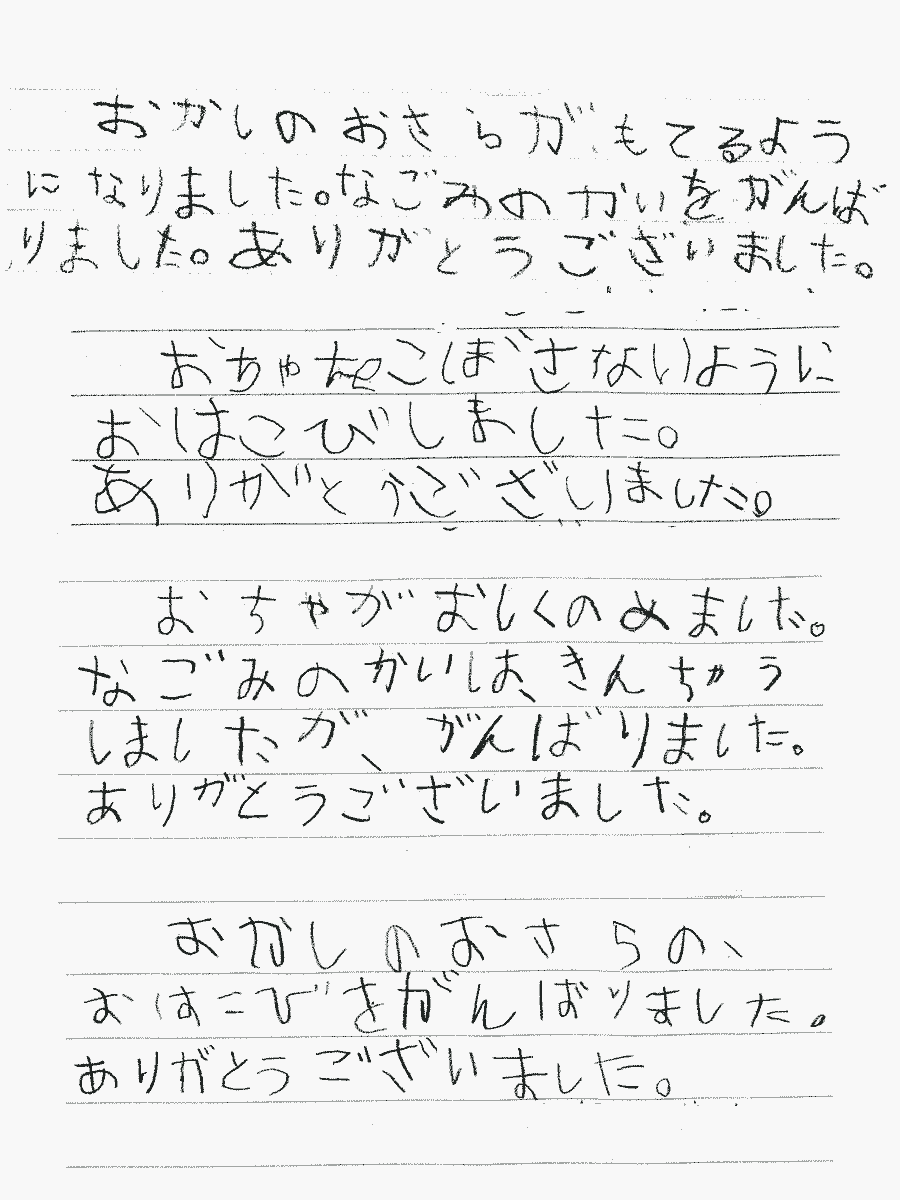 おかしのおさらがもてるよう
になりました。なごみのかいをがんば
りました。ありがとうございました。
おちゃをこぼさないように
おはこびしました。
ありがとうございました。
おちゃがおしくのめました。
なごみのかいは、きんちゃう
しましたが、がんばりました。
ありがとうございました。
おかしのおさらの、
おはこびをがんばりました。
ありがとうございました。